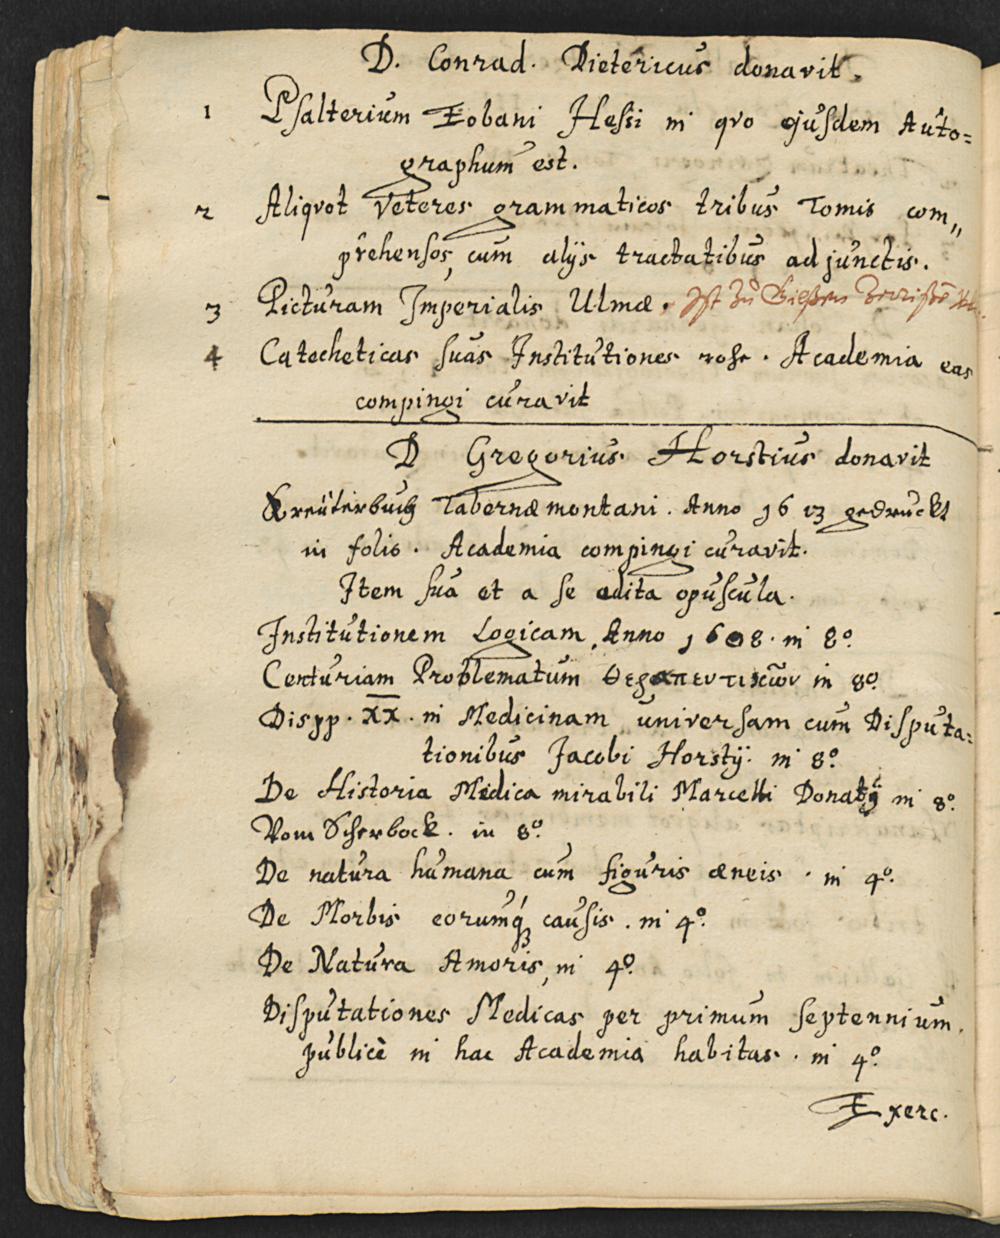 D. Conrad. Dietericus donavit.
1 Psalterium Eobani Hessi in qvo ejusdem Auto=
graphum est.
2 Aliqvot Veteres grammaticos tribus Tomis com„
prehensos, cum alijs tractatibus adjunctis.
3 Picturam Imperialis Ulmæ. Ist zu Gießen
4 Catecheticas suas Institutiones . Academia eas
compingi curavit
D Gregorius Horstius donavit
Kreüterbuch Tabernæmontani. Anno 1613 gedruckt
in folio. Academia compingi curavit.
Item sua et a se edita opuscula.
Institutionem Logicam, Anno 1608. in 8º.
Centuriam Problematum θεραπευτικῶν in 8º.
Dispp. XX. in Medicinam universam cum Disputa=
tionibus Jacobi Horstij. in 8º.
De Historia Medica mirabili Marcelli Donatij in 8º.
Vom Scherbock. in 8º.
De natura humana cum figuris æneis. in 4º.
De Morbis eorumq́ causis. in 4º.
De Natura Amoris, in 4º.
Disputationes Medicas per primum septennium.
publicè in hac Academia habitas. in 4º.
Exerc.